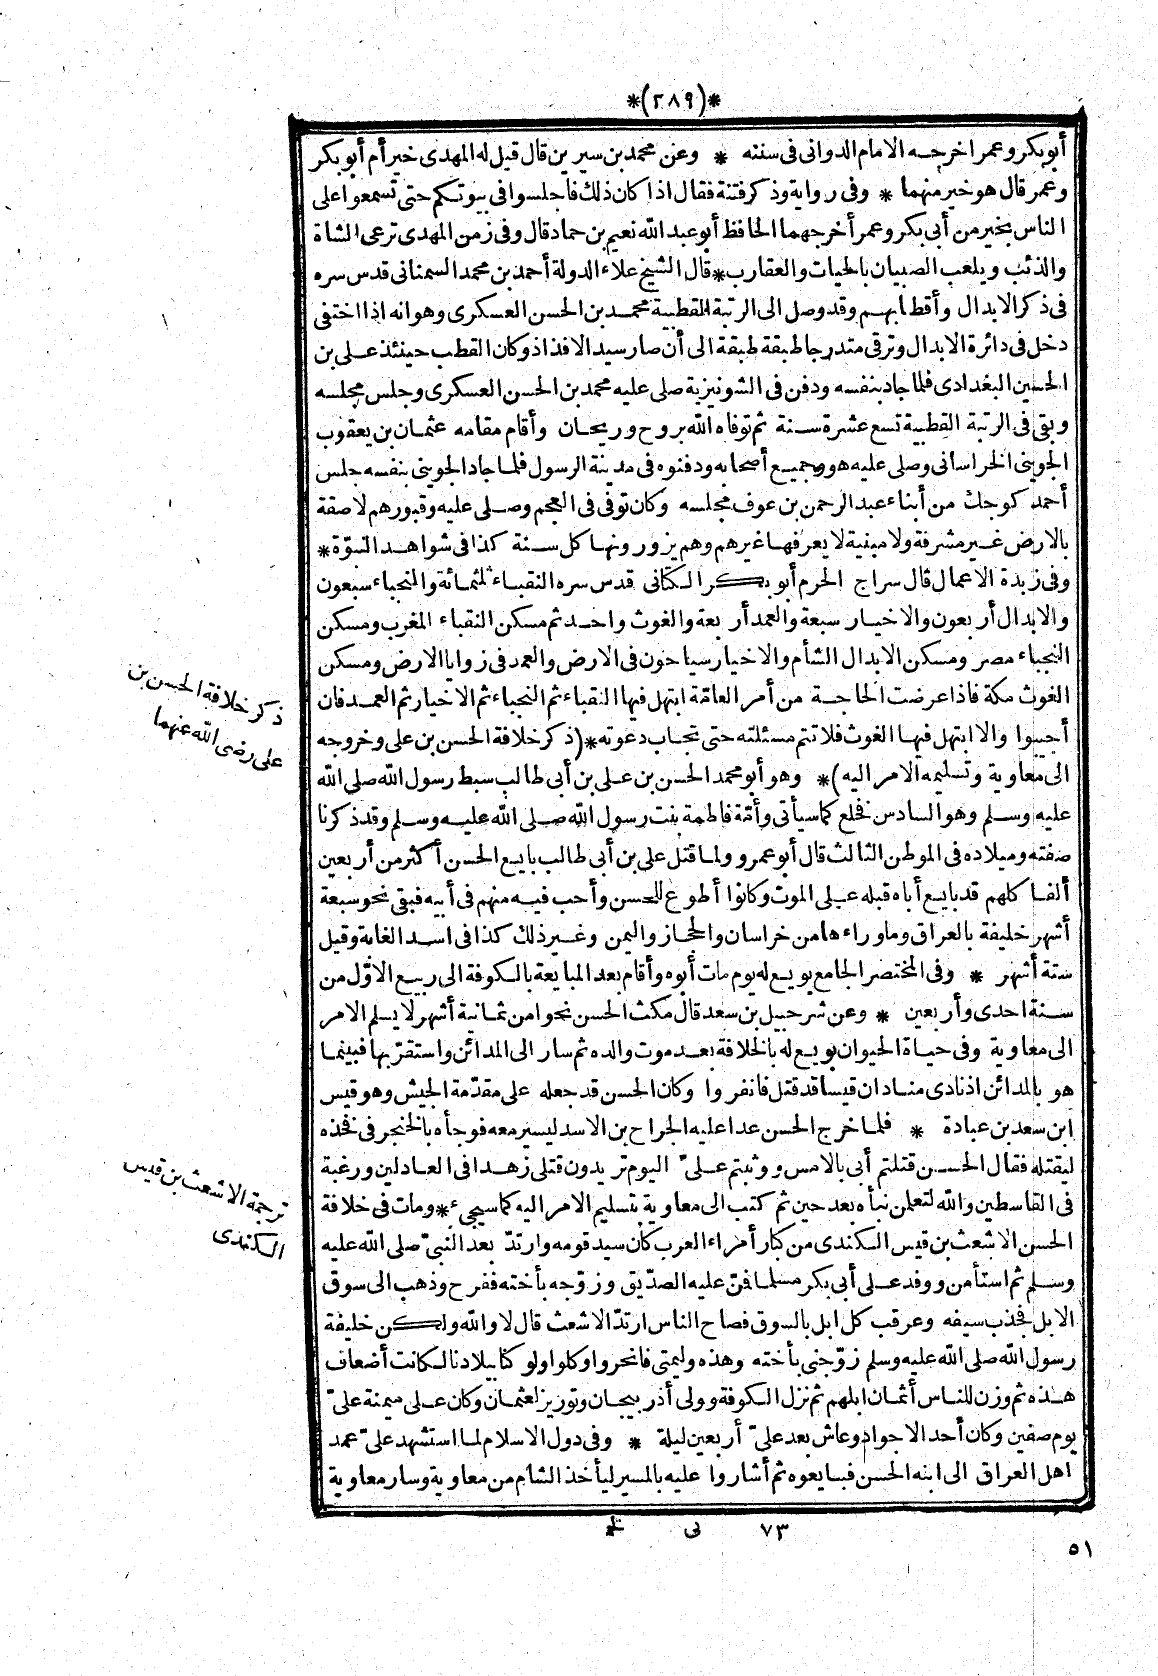 *(٢٨٩)*
أبو بكر وعمر اخرجه الامام الدوانى فى سننه * وعن محمد بن سيرين قال قيل له المهدى خير أم أبو بكر
وعمر قال هو خير منهما * وفى رواية وذكر فتنة فقال اذا كان ذلك فاجلسوا فى بيوتكم حتى تسمعوا على
الناس بخير من أبى بكر وعمر أخرجهما الحافظ أبو عبد الله نعيم بن حماد قال وفى زمن المهدى ترعى الشاة
والذئب ويلعب الصبيان بالحيات والعقارب * قال الشيخ علاء الدولة أحمد بن محمد السمنانى قدس سره
فى ذكر الابدال وأقطابهم وقد وصل الى الرتبة القطبية محمد بن الحسن العسكرى وهو انه اذا اختفى
دخل فى دائرة الابدال وترقى متدرجا طبقة طبقة الى أن صار سيد الافذاذ وكان القطب حينئذ على بن
الحسين البغدادى فلما جاد بنفسه ودفن فى الشونيزية صلى عليه محمد بن الحسن العسكرى وجلس مجلسه
وبقى فى الرتبة القطبية تسع عشرة سنة ثم توفاه الله بروح وريحان وأقام مقامه عثمان بن يعقوب
الجوينى الخراسانى وصلى عليه هو وجميع أصحابه ودفنوه فى مدينة الرسول فلما جاد الجوينى بنفسه جلس
أحمد كوجك من أبناء عبد الرحمن بن عوف مجلسه وكان توفى فى العجم وصلى عليه وقبورهم لاصقة
بالارض غير مشرفة ولا مبنية لا يعرفها غيرهم وهم يزورونها كل سنة كذا فى شواهد النبوّة *
وفى زبدة الاعمال قال سراج الحرم أبو بكر الكتانى قدس سره النقباء ثلثمائة والنجباء سبعون
والابدال أربعون والاخيار سبعة والعمد أربعة والغوث واحد ثم مسكن النقباء المغرب ومسكن
النجباء مصر ومسكن الابدال الشأم والاخيار سياحون فى الارض والعمد فى زوايا الارض ومسكن
الغوث مكة فاذا عرضت الحاجة من أمر العامّة ابتهل فيها النقباء ثم النجباء ثم الاخيار ثم العمد فان
أجيبوا والا ابتهل فيها الغوث فلا تتم مسئلته حتى تجاب دعوته * (ذكر خلافة الحسن بن على وخروجه
الى معاوية وتسليمه الامر اليه) * وهو أبو محمد الحسن بن على بن أبى طالب سبط رسول الله صلى الله
عليه وسلم وهو السادس فخلع كما سيأتى وأمّه فاطمة بنت رسول الله صلى الله عليه وسلم وقد ذكرنا
صفته وميلاده فى الموطن الثالث قال أبو عمرو ولما قتل على بن أبى طالب بايع الحسن أكثر من أربعين
ألفا كلهم قد بايع أباه قبله على الموت وكانوا أطوع للحسن وأحب فيه منهم فى أبيه فبقى نحو سبعة
أشهر خليفة بالعراق وما وراءها من خراسان والحجاز واليمن وغير ذلك كذا فى اسد الغابة وقيل
ستة أشهر * وفى المختصر الجامع بويع له يوم مات أبوه وأقام بعد المبايعة بالكوفة الى ربيع الاوّل من
سنة احدى وأربعين * وعن شرحبيل بن سعد قال مكث الحسن نحوا من ثمانية أشهر لا يسلم الامر
الى معاوية وفى حياة الحيوان بويع له بالخلافة بعد موت والده ثم سار الى المدائن واستقرّ بها فبينما
هو بالمدائن اذ نادى مناد ان قيسا قد قتل فانفروا وكان الحسن قد جعله على مقدّمة الجيش وهو قيس
ابن سعد بن عبادة * فلما خرج الحسن عدا عليه الجراح بن الاسد ليسير معه فوجأه بالخنجر فى فخذه
ليقتله فقال الحسن قتلتم أبى بالامس ووثبتم علىّ اليوم تريدون قتلى زهدا فى العادلين ورغبة
فى القاسطين والله لتعلمن نبأه بعد حين ثم كتب الى معاوية بتسليم الامر اليه كما سيجىء * ومات فى خلافة
الحسن الاشعث بن قيس الكندى من كبار أمراء العرب كان سيد قومه وارتدّ بعد النبىّ صلى الله عليه
وسلم ثم استأمن ووفد على أبى بكر مسلما فمنّ عليه الصدّيق وزوّجه بأخته ففرح وذهب الى سوق
الابل فجذب سيفه وعرقب كل ابل بالسوق فصاح الناس ارتدّ الاشعث قال لا والله ولكن خليفة
رسول الله صلى الله عليه وسلم زوّجنى بأخته وهذه وليمتى فانحروا وكلوا ولو كنا ببلادنا لكانت أضعاف
هذه ثم وزن للناس أثمان ابلهم ثم نزل الكوفة وولى أذربيجان وتوزير لعثمان وكان على ميمنة علىّ
يوم صفين وكان أحد الاجواد وعاش بعد علىّ أربعين ليلة * وفى دول الاسلام لما استشهد علىّ عمد
اهل العراق الى ابنه الحسن فبايعوه ثم أشاروا عليه بالمسير ليأخذ الشام من معاوية وسار معاوية
ذكر خلافة الحسن بن
على رضى الله عنهما
ترجمة الاشعث بن قيس
الكندى
٧٣ نى
٥١